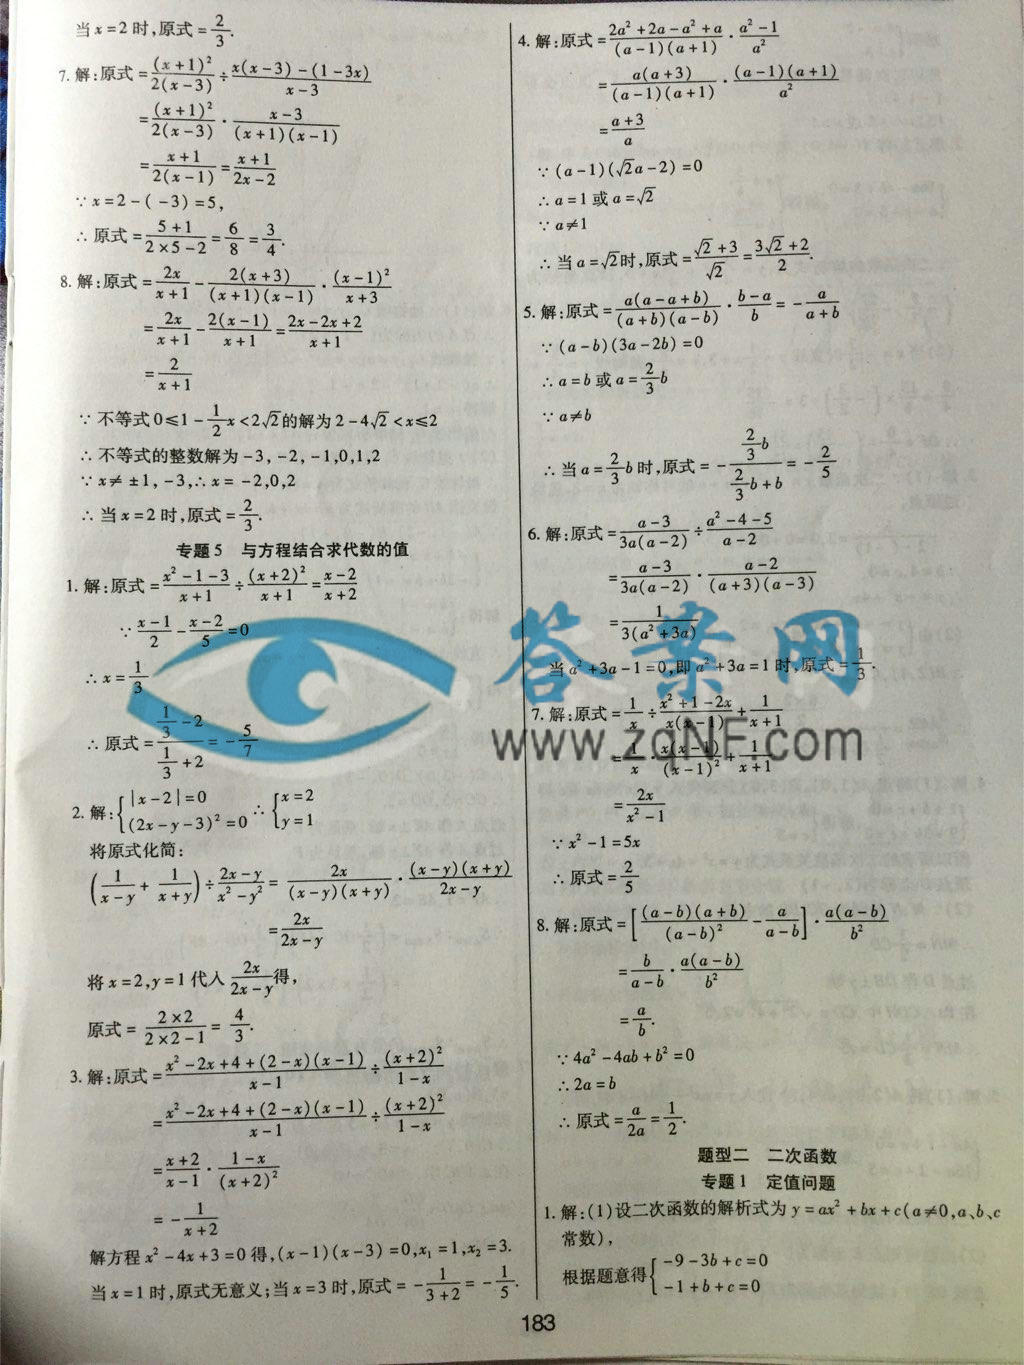 当x=2时,原式=2/3.
7.解:原式=(x+1)²/2(x-3)÷x(x-3)-(1-3x)/x-3
=(x+1)²/2(x-3)·x-3/(x+1)(x-1)
=x+1/2(x-1)=x+1/2x-2
∵x=2-(-3)=5,
∴原式=5+1/2×5-2=6/8=3/4.
8.解:原式=2x/x+1-2(x+3)/(x+1)(x-1)·(x-1)²/x+3
=2x/x+1-2(x-1)/x+1=2x-2x+2/x+1
=2/x+1
∵不等式0≤1-1/2x<2√2的解为2-4√2<x≤2
∴不等式的整数解为-3,-2,-1,0,1,2
∵x≠±1,-3,∴x=-2,0,2
∴当x=2时,原式=2/3.
专题5 与方程结合求代数的值
1.解:原式=x²-1-3/x+1÷(x+2)²/x+1=x-2/x+2
∵x-1/2-x-2/5=0
∴x=1/3
∴原式=1/3-2/1/3+2=-5/7
2.解:{|x-2|=0 (2x-y-3)²=0∴{x=2 y=1
将原式化简:
(1/x-y+1/x+y)÷2x-y/x²-y²=2x/(x-y)(x+y)·(x-y)(x+y)/2x-y
=2x/2x-y
将x=2,y=1代入2x/2x-y得,
原式=2×2/2×2-1=4/3.
3.解:原式=x²-2x+4+(2-x)(x-1)/x-1÷(x+2)²/1-x
=x²-2x+4+(2-x)(x-1)/x-1÷(x+2)²/1-x
=x+2/x-1·1-x/(x+2)²
=-1/x+2
解方程x²-4x+3=0得,(x-1)(x-3)=0,x₁=1,x₂=3.
当x=1时,原式无意义;当x=3时,原式=-1/3+2=-1/5.
4.解:原式=2a²+2a-a²+a/(a-1)(a+1)·a²-1/a²
=a(a+3)/(a-1)(a+1)·(a-1)(a+1)/a²
=a+3/a
∵(a-1)(√2a-2)=0
∴a=1或a=√2
∵a≠1
∴当a=√2时,原式=√2+3/√2=3√2+2/2.
5.解:原式=a(a-a+b)/(a+b)(a-b)·b-a/b=-a/a+b
∵(a-b)(3a-2b)=0
∴a=b或a=2/3b
∵a≠b
∴当a=2/3b时,原式=-2/3b/2/3b+b=-2/5
6.解:原式=a-3/3a(a-2)÷a²-4-5/a-2
=a-3/3a(a-2)·a-2/(a+3)(a-3)
=1/3(a²+3a)
当a²+3a-1=0,即a²+3a=1时,原式=1/3.
7.解:原式=1/x÷x²+1-2x/x(x-1)+1/x+1
=1/x·x(x-1)/(x-1)²+1/x+1
=2x/x²-1
∵x²-1=5x
∴原式=2/5
8.解:原式=[(a-b)(a+b)/(a-b)²-a/a-b]·a(a-b)/b²
=b/a-b·a(a-b)/b²
=a/b.
∵4a²-4ab+b²=0
∴2a=b
∴原式=a/2a=1/2.
题型二 二次函数
专题1 定值问题
1.解:(1)设二次函数的解析式为y=ax²+bx+c(a≠0,a、b、c
常数),
根据题意得{-9-3b+c=0 -1+b+c=0
183
答案网
www.zqNF.com